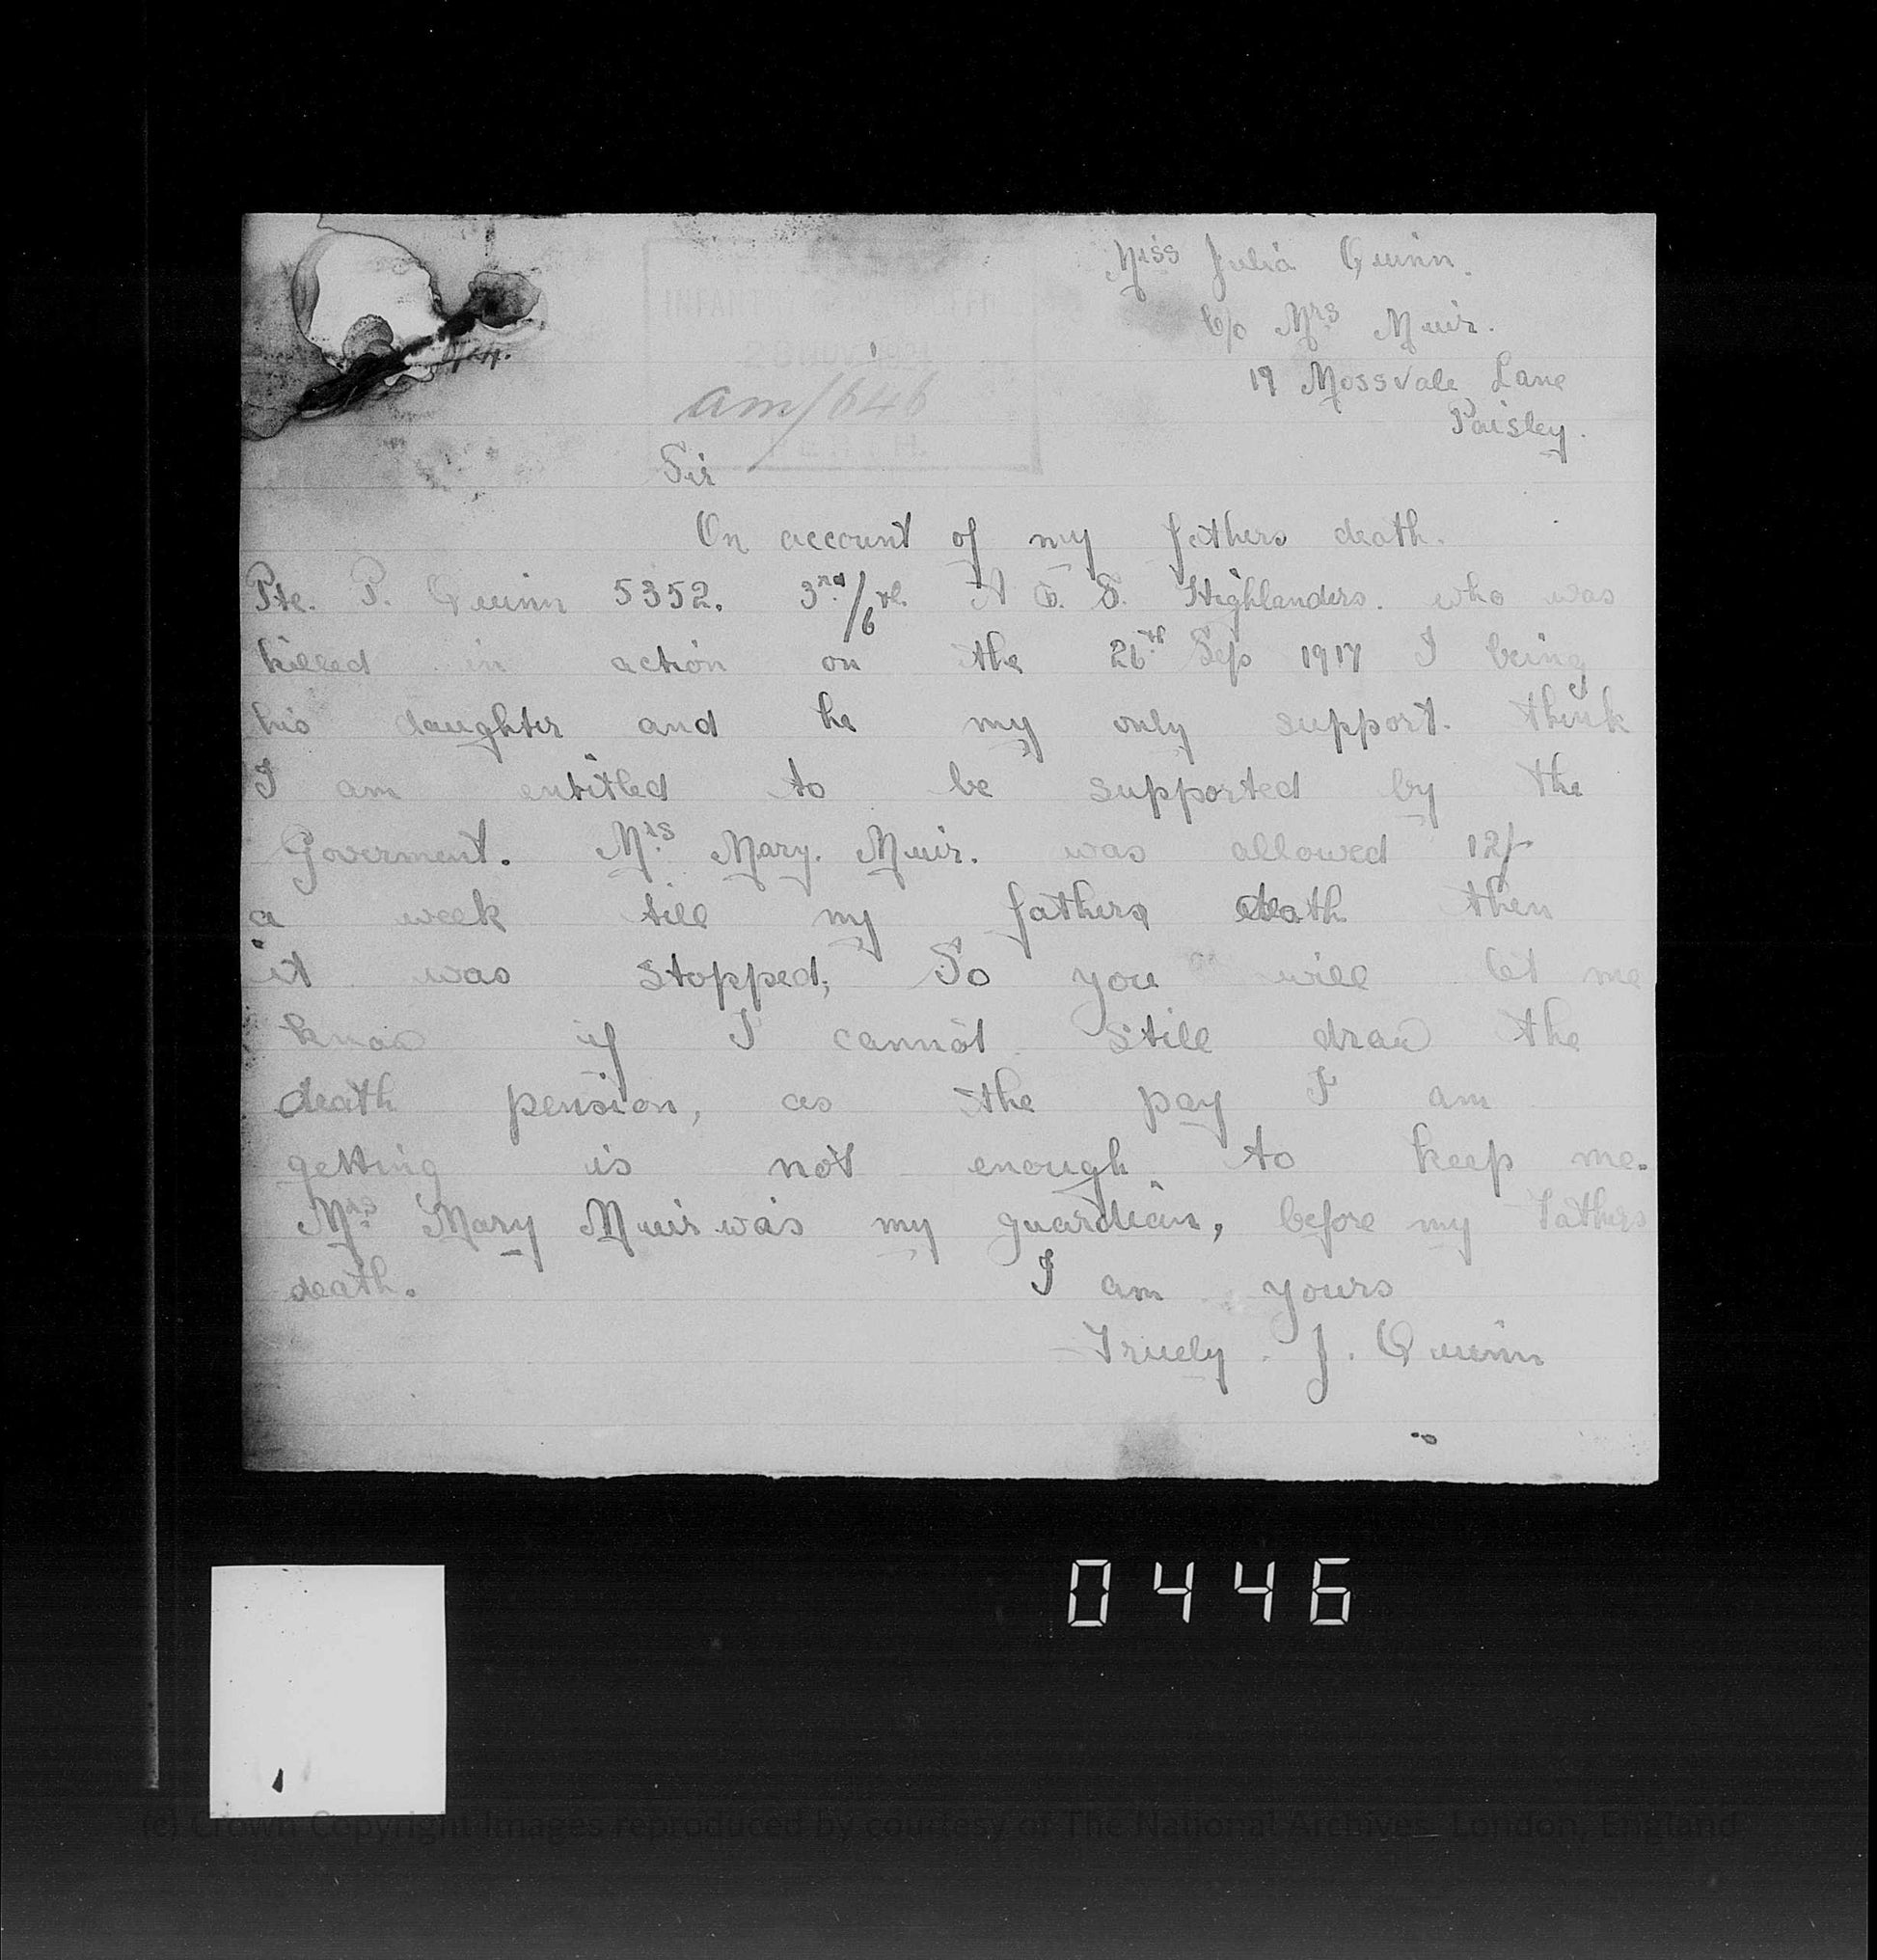 Miss Julia Quinn.
C/o Mrs Muir.
19 Mossvale Lane
Paisley.
INFANTRY
am/646
Sir
On account of my fathers death.
Pte. P. Quinn 5352. 3rd/6th A & S. Highlanders. who was
killed in action on the 26th Sep 1917 I being
his daughter and he my only support. think
I am entitled to be supported by the
Goverment. Mrs Mary. Muir. was allowed 12/-
a week till my fathers death then
it was stopped; So you will let me
know if I cannot still draw the
death pension, as the pay I am
getting is not enough to keep me.
Mrs Mary Muir was my guardian, before my Fathers
death. I am yours
Truely. J. Quinn
0446
(c) Crown Copyright Images reproduced by courtesy of The National Archives, London, England